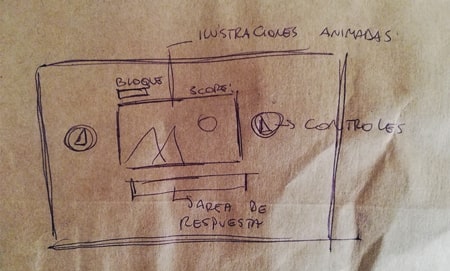 ILUSTRACIONES ANIMADAS.
BLOQUE
SCORE:
CONTROLES
AREA DE
RESPUESTA